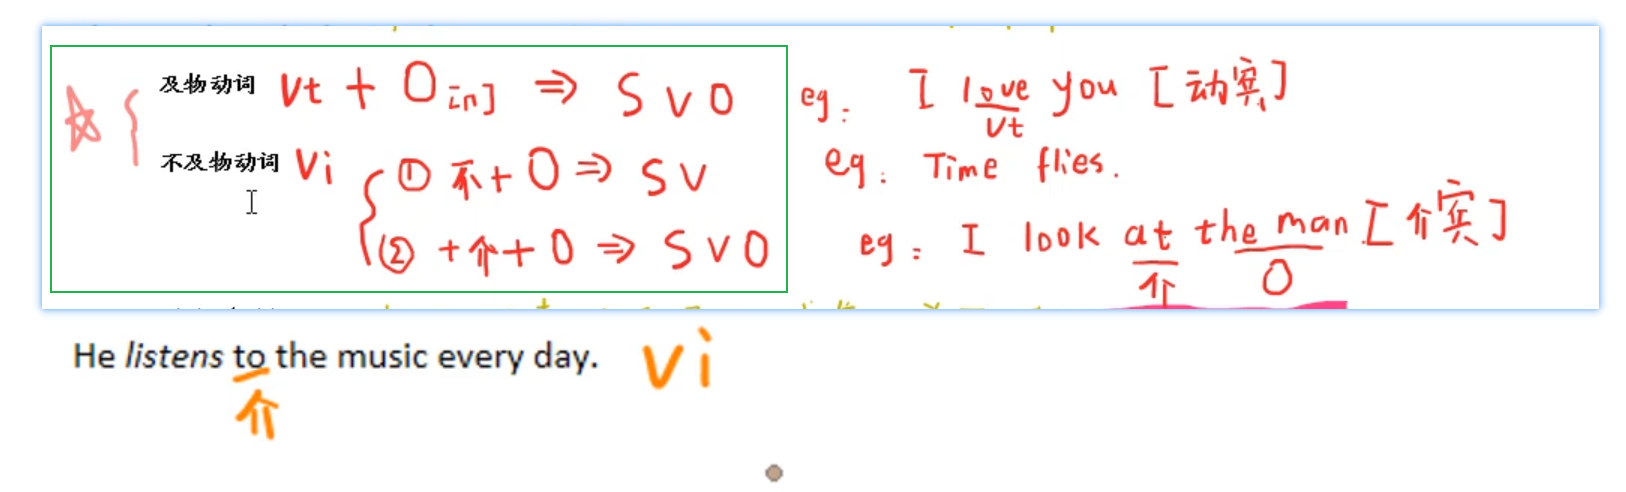 及物动词 Vt + O [宾] ⇒ S V O eg: I love you [动宾]
Vt
不及物动词 Vi ① 不 + O ⇒ S V eg: Time flies.
② + 介 + O ⇒ S V O eg: I look at the man [介宾]
介 O
He listens to the music every day. Vi
介